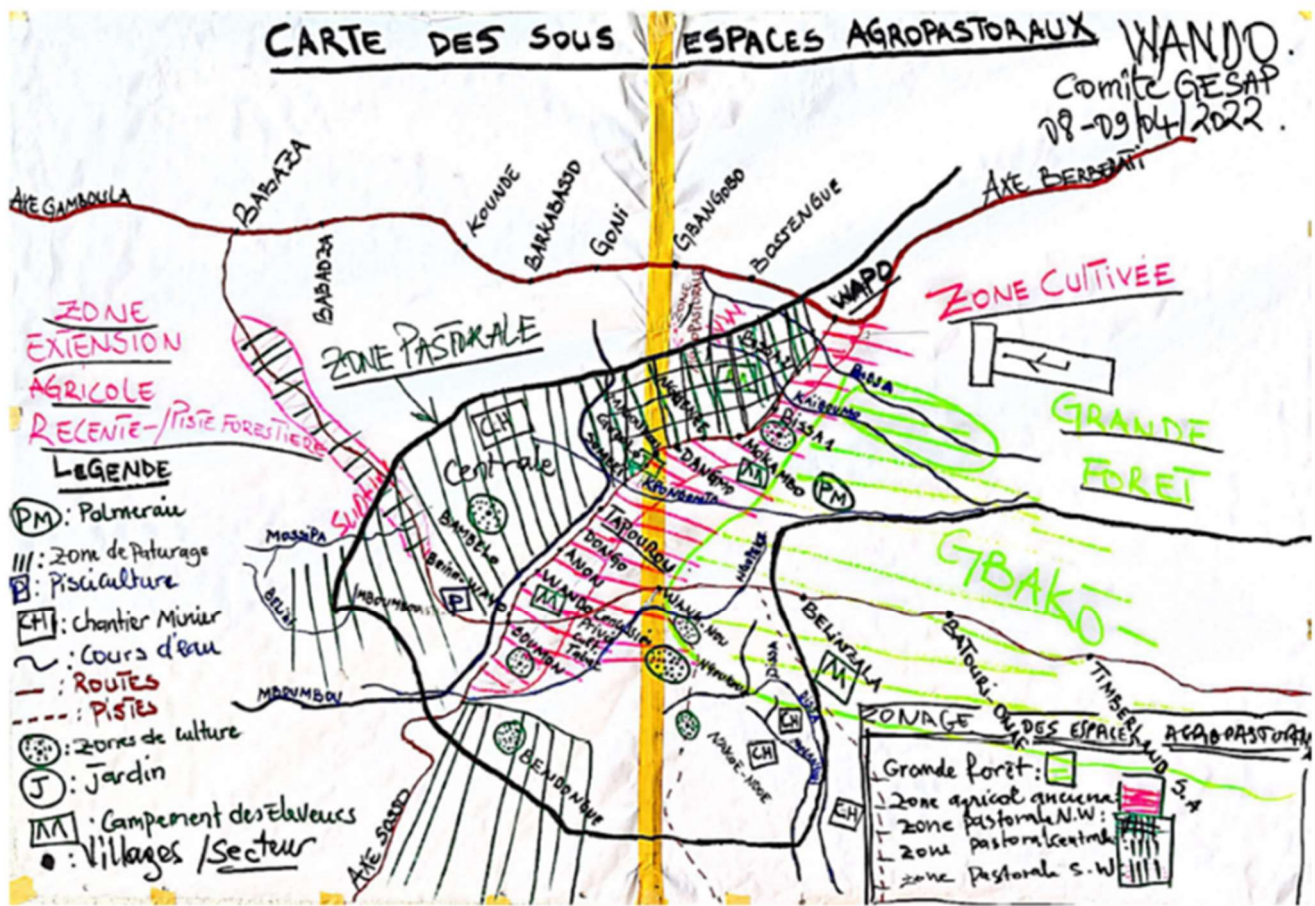 CARTE DES SOUS ESPACES AGROPASTORAUX
WANDO.
Comité GESAP
08-09/04/2022.
AXE GAMBOULA
BABAZA
BABADZA
KOUNDE
BARKABASSO
GONI
GBANGOBO
BASSENGUE
WAPO
AXE BERBERATI
ZONE CULTIVÉE
GRANDE
FORET
GBAKO
ZONE
EXTENSION
AGRICOLE
RECENTE-/PISTE FORESTIERE
ZONE PASTORALE
CH
Centrale
BAMBELO
DISSA 1
MOKAMBO
DANGMO
PM
TAPOUROU
DONGO
ANON
WANDO
GOUNON
P
MOSSIPA
MBOUMBOU
BENDONGUE
AXE SOSSO
BELINZALA
BATOURI
TIMBERLAND S.A
CH
CH
CH
LEGENDE
PM : Palmeraie
: Zone de Paturage
P : Pisciculture
CH : Chantier Minier
: Cours d'eau
: ROUTES
: PISTES
: Zones de culture
J : Jardin
: Campement des Eleveurs
: Villages /Secteur
ZONAGE DES ESPACES AGROPASTORAU
Grande Foret :
Zone agricol ancienne:
Zone pastorale N.W :
Zone pastoral centrale
Zone Pastorale S.W